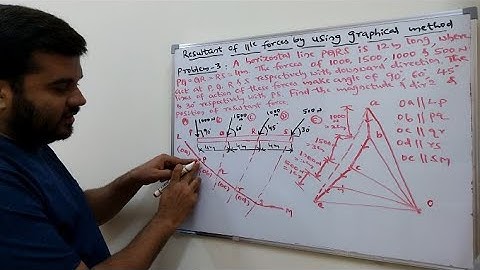 Resultant of 11le forces by using graphical method
Problem-3: A horizontal line PQRS is 12m long, where
PQ = QR = RS = 4m. The forces of 1000, 1500, 1000 & 500 N
act at P, Q, R & S respectively with downward direction. The
lines of action of these forces make angle of 90°, 60°, 45°
& 30° respectively with PS. Find the magnitude & dirn &
position of resultant force.
1000N 1500 1000 500N
P 90° Q 60° R 45° S 30°
4m 4m 4m
L
M
a
b
e
o
oa || LP
ob || pq
oc || qr
od || rs
oe || SM